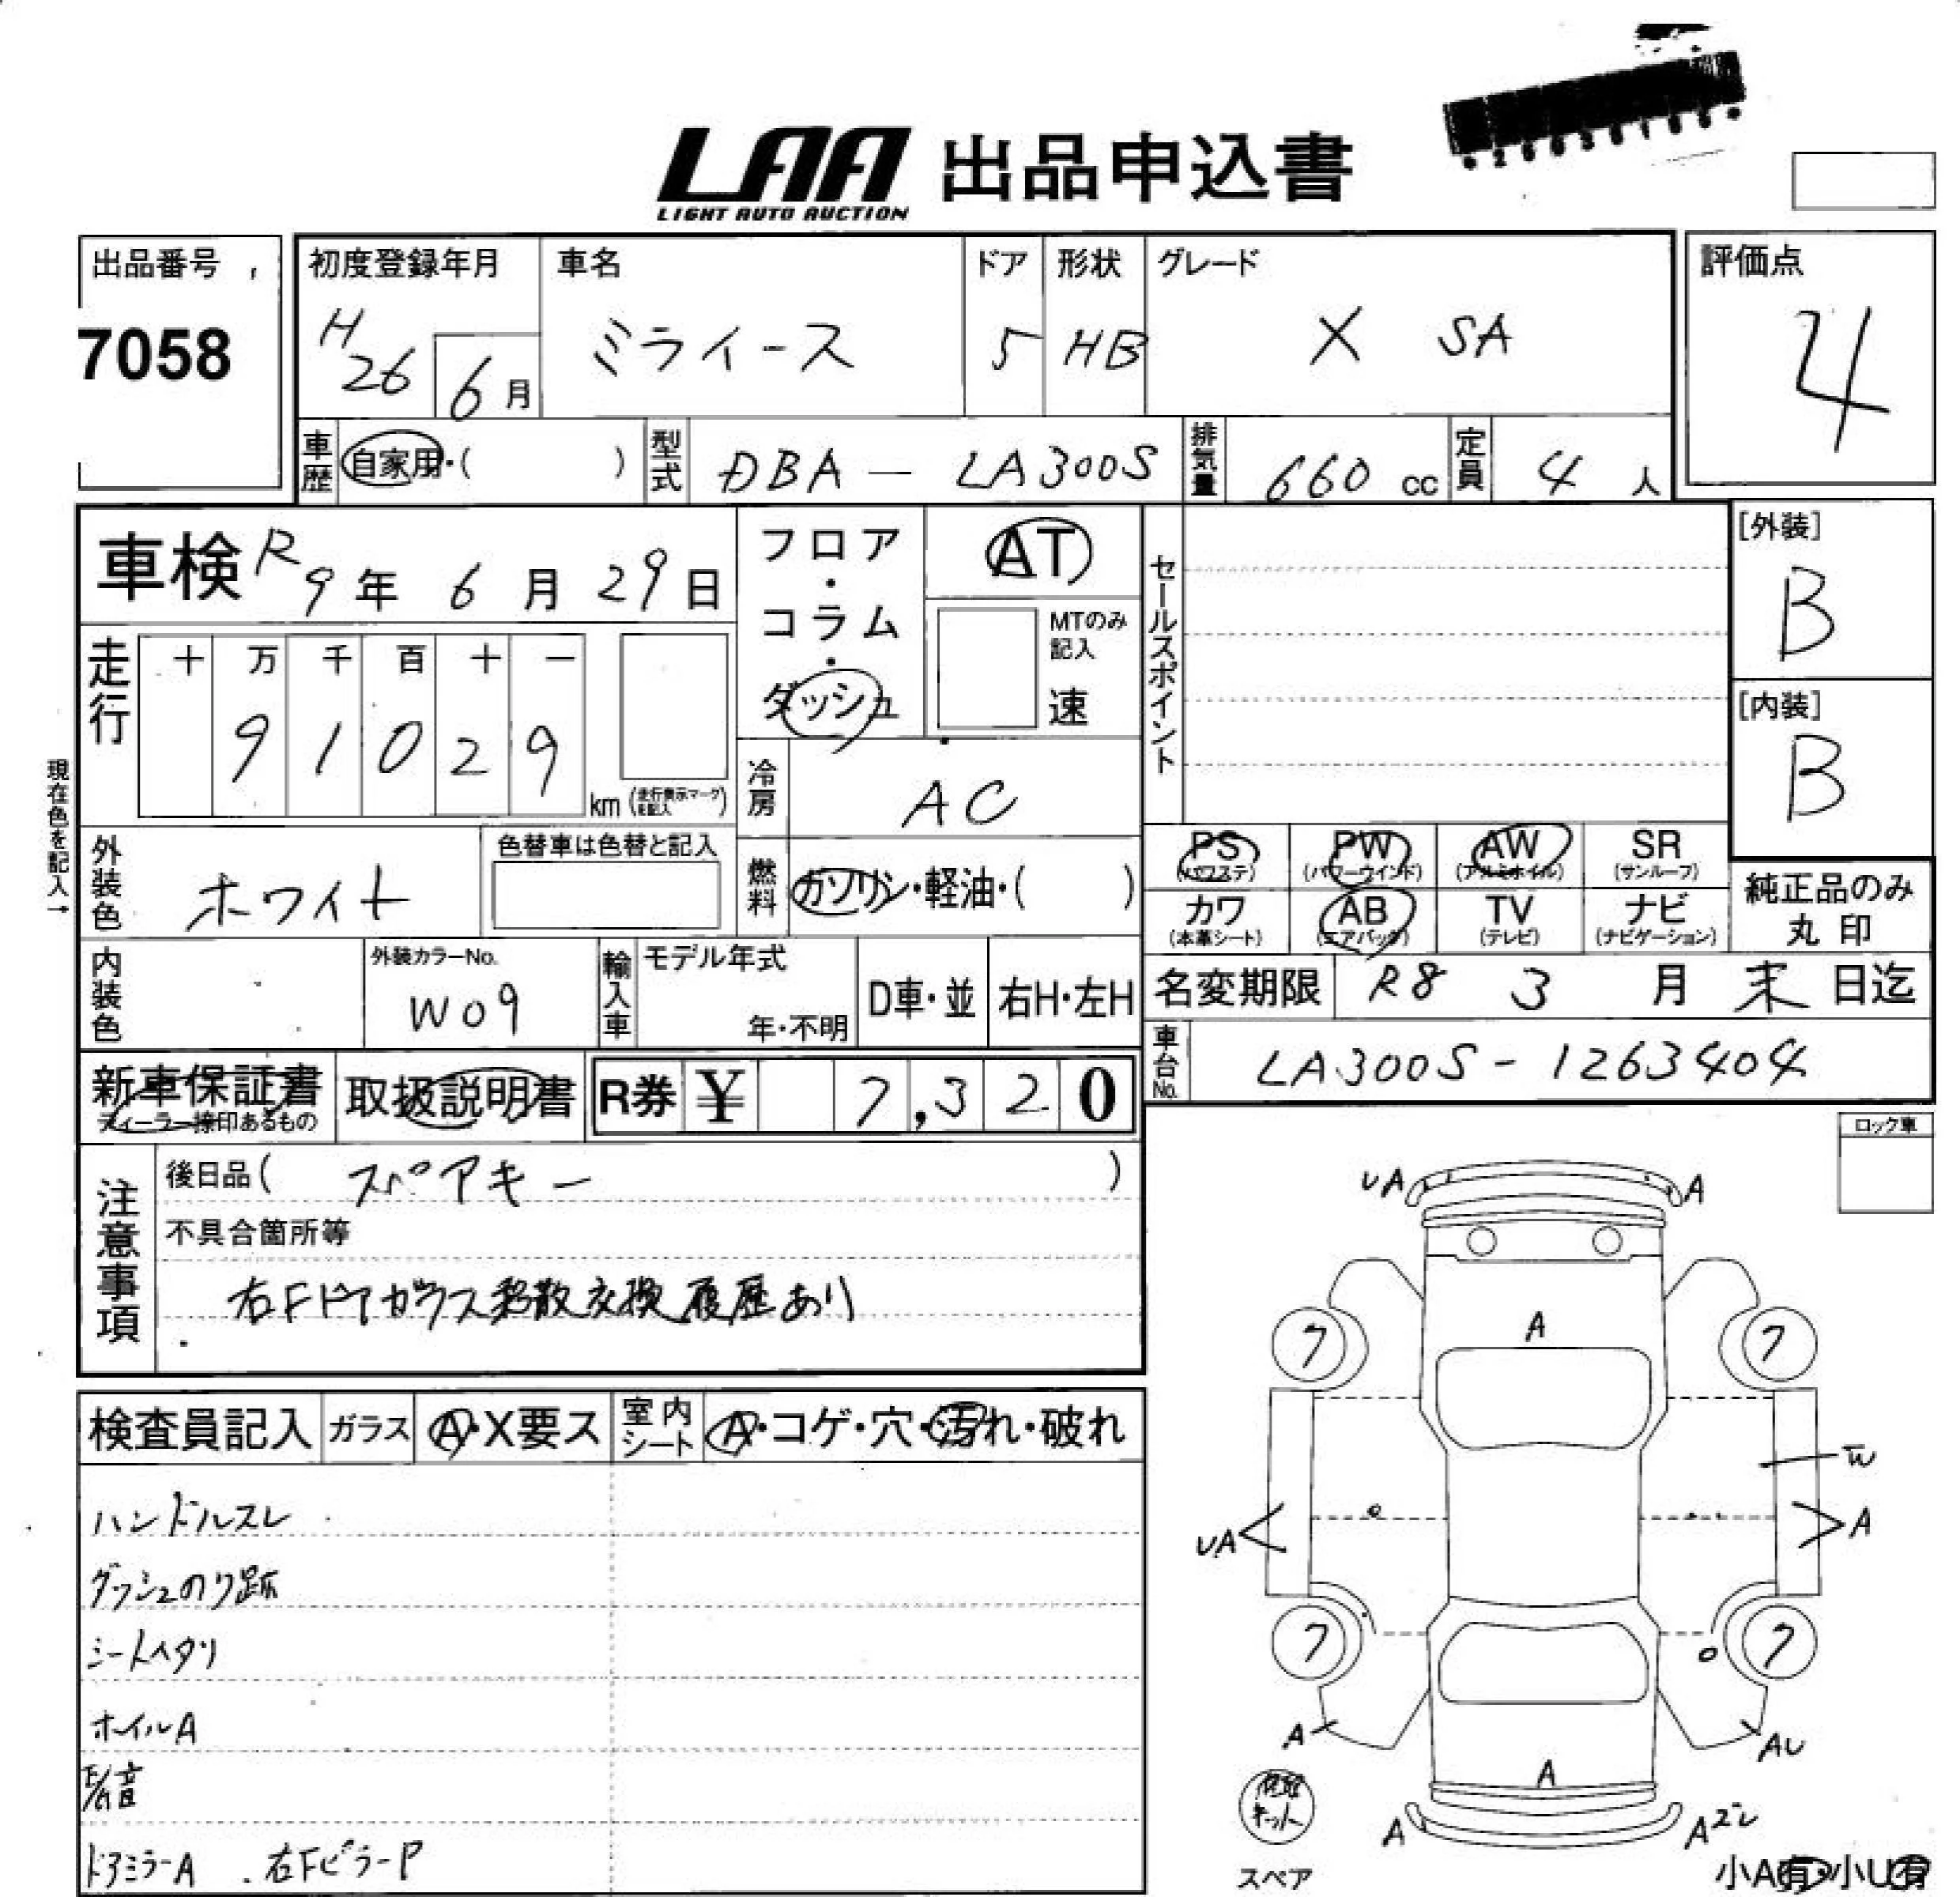 LAA 出品申込書
LIGHT AUTO AUCTION
出品番号
7058
初度登録年月
H26 6月
車名
ミライース
ドア
5
形状
HB
グレード
X SA
評価点
4
車歴 自家用・( )
型式 DBA - LA300S
排気量 660 cc
定員 4 人
車検 R9年 6月 29日
フロア・コラム・ダッシュ
AT
MTのみ記入
速
セールスポイント
[外装]
B
[内装]
B
走行
十 万 千 百 十 一
9 1 0 2 9
km (走行表示マークを記入)
冷房 AC
現在色を記入→
外装色 ホワイト
色替車は色替と記入
燃料 ガソリン・軽油・( )
PS (パワステ)
PW (パワーウインド)
AW (アルミホイル)
SR (サンルーフ)
カワ (本革シート)
AB (エアバック)
TV (テレビ)
ナビ (ナビゲーション)
純正品のみ
丸印
内装色
外装カラーNo.
W09
輸入車
モデル年式
年・不明
D車・並
右H・左H
名変期限 R8 3月 末日迄
車台No. LA300S - 1263404
新車保証書
ディーラー捺印あるもの
取扱説明書
R券 ¥ 7,320
ロック車
注意事項
後日品( スペアキー )
不具合箇所等
右Fドアガラス飛散交換履歴あり
検査員記入
ガラス A・X要ス
室内シート A・コゲ・穴・汚れ・破れ
ハンドルスレ
ダッシュのり跡
シートヘタリ
ホイルA
ドアミラーA . 右FピラーP
UA A
A
7 7
W
UA A
7 7
A AU
A
A Aズレ
スペア
小A有・小U有